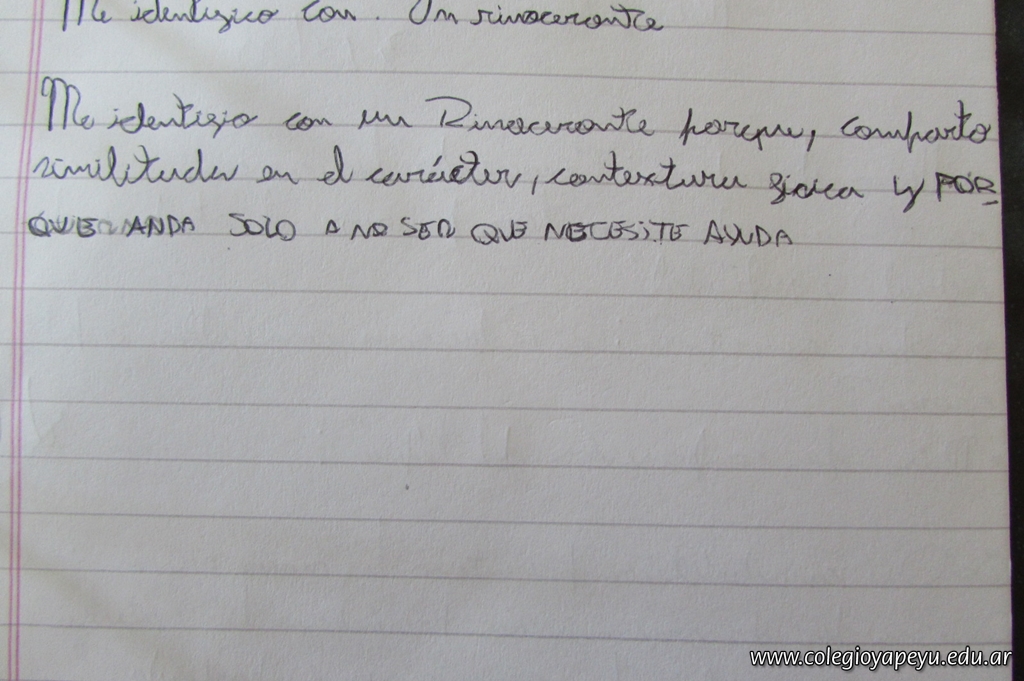 Me identifico con. Un rinoceronte
Me identifio con un Rinoceronte porque, comparto
similitudes en el carácter, contextura física y POR
QUE ANDA SOLO A NO SER QUE NECESITE AYUDA
www.colegioyapeyu.edu.ar